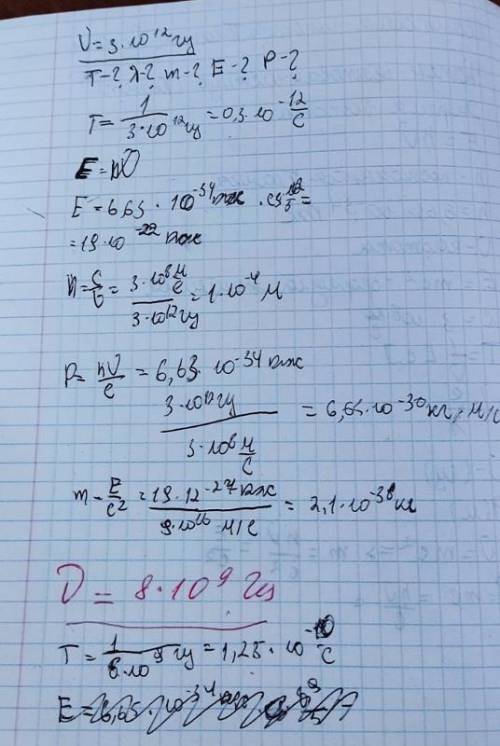 ν = 3·10¹² гц
T-? λ-? m-? E-? P-?
T = 1 / 3·10¹² гц = 0,3·10⁻¹² с
E = hν
E = 6,63 · 10⁻³⁴ кдж
= 19·10⁻²² кдж
= c/ν = 3·10⁸ м/с / 3·10¹² гц = 1·10⁻⁴ м
p = hν/c = 6,63·10⁻³⁴ кдж
3·10¹² гц / 3·10⁸ м/с = 6,63·10⁻³⁰ кг · м/с
m - E/c² = 19·12⁻²⁷ кдж / 9·10¹⁶ м/с = 2,1·10⁻³⁸ кг
ν = 8·10⁹ Гц
T = 1 / 8·10⁹ гц = 1,25·10⁻¹⁰ с